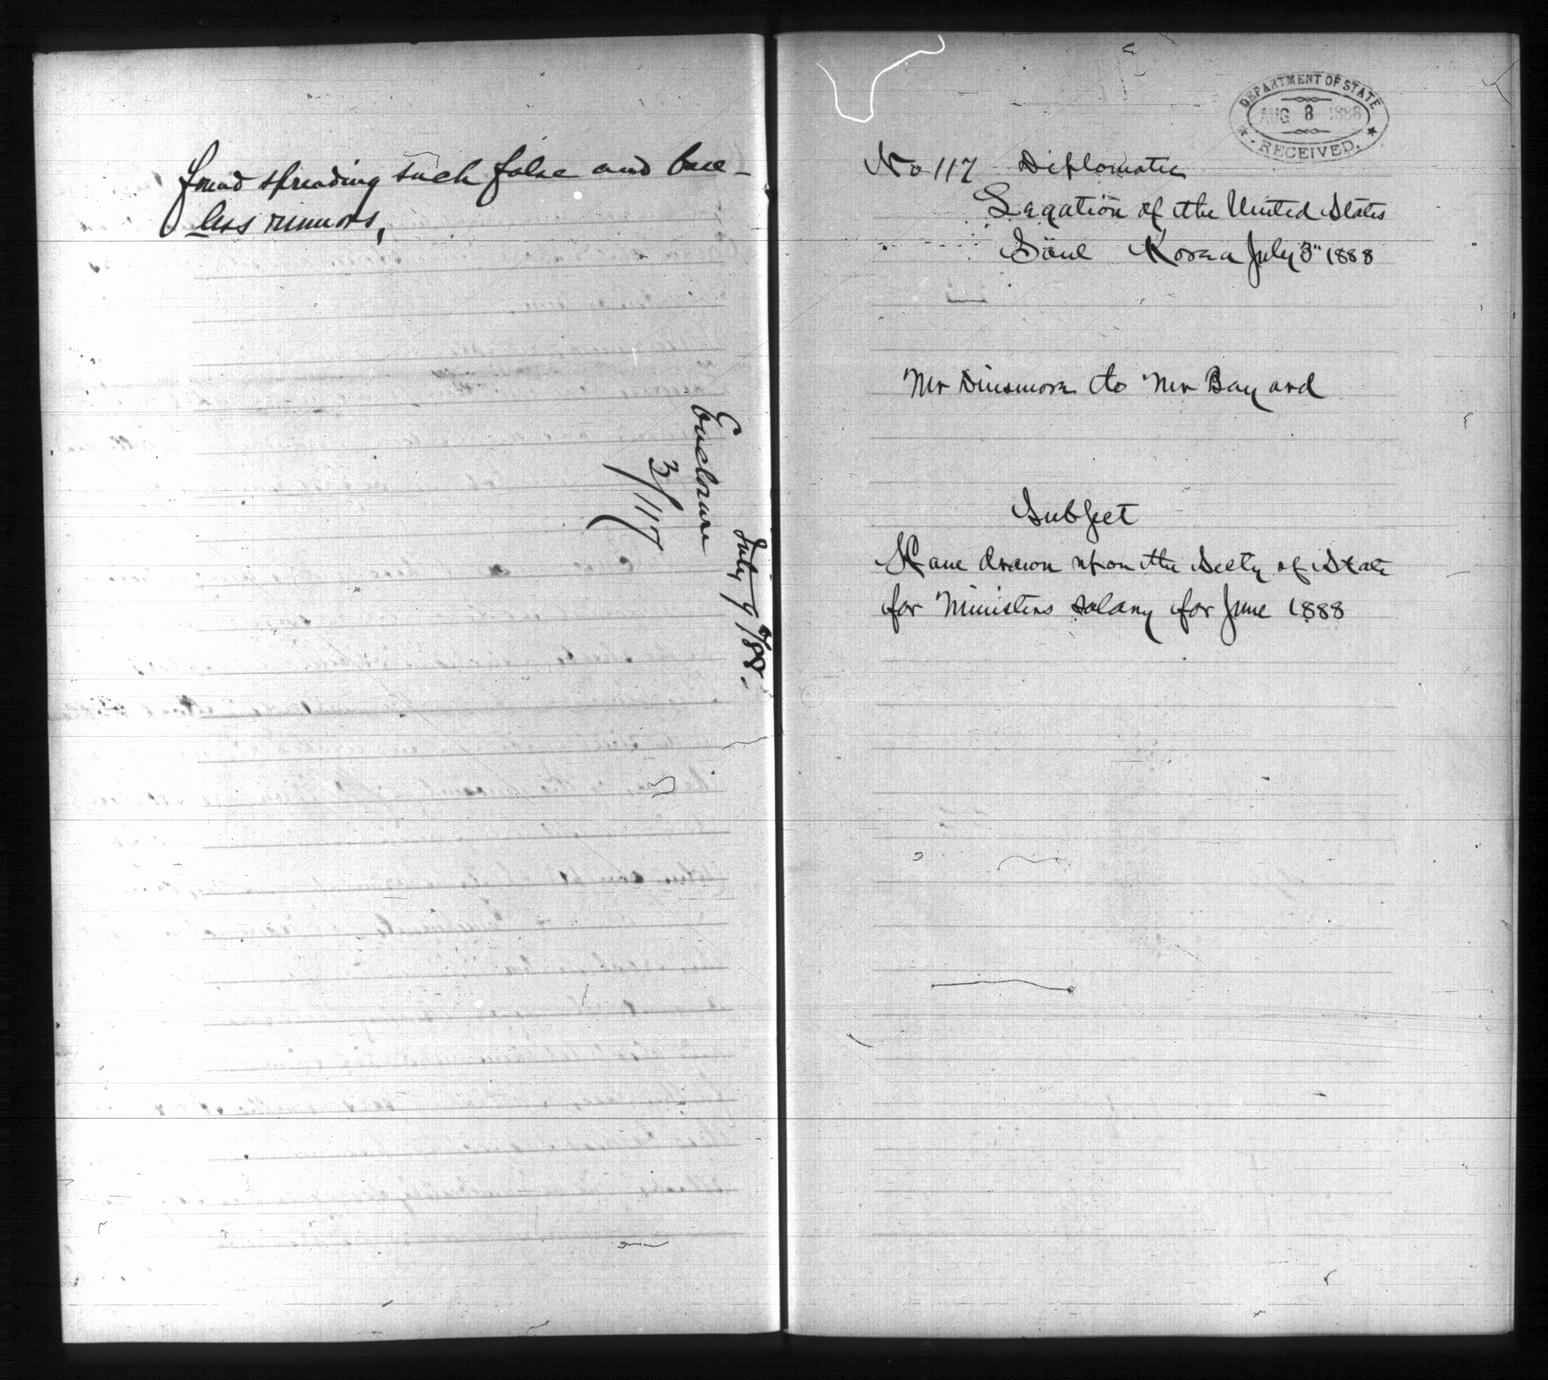 found spreading such false and base-
less rumors,
Enclosure
3/117
July 9th/88.
DEPARTMENT OF STATE
AUG 8 1888
RECEIVED.
No 117 Diplomatic
Legation of the United States
Söul Korea July 3" 1888
Mr Dinsmore to Mr Bayard
Subject
Have drawn upon the Secty of State
for Ministers salary for June 1888